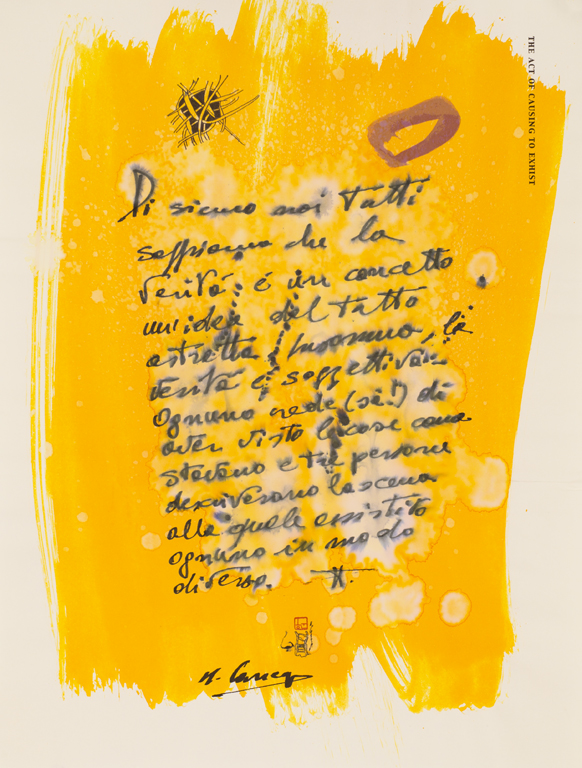 THE ACT OF CAUSING TO EXHIST
Di siamo noi tutti
sappiamo che la
verità é un concetto
un'idea del tutto
astratta, Insomma, la
verità é soggettiva
Ognuno crede (sì!) di
aver visto le cose come
stavano e tre persone
descriverano la scena
alla quale assistito
ognuno in modo
diverso.